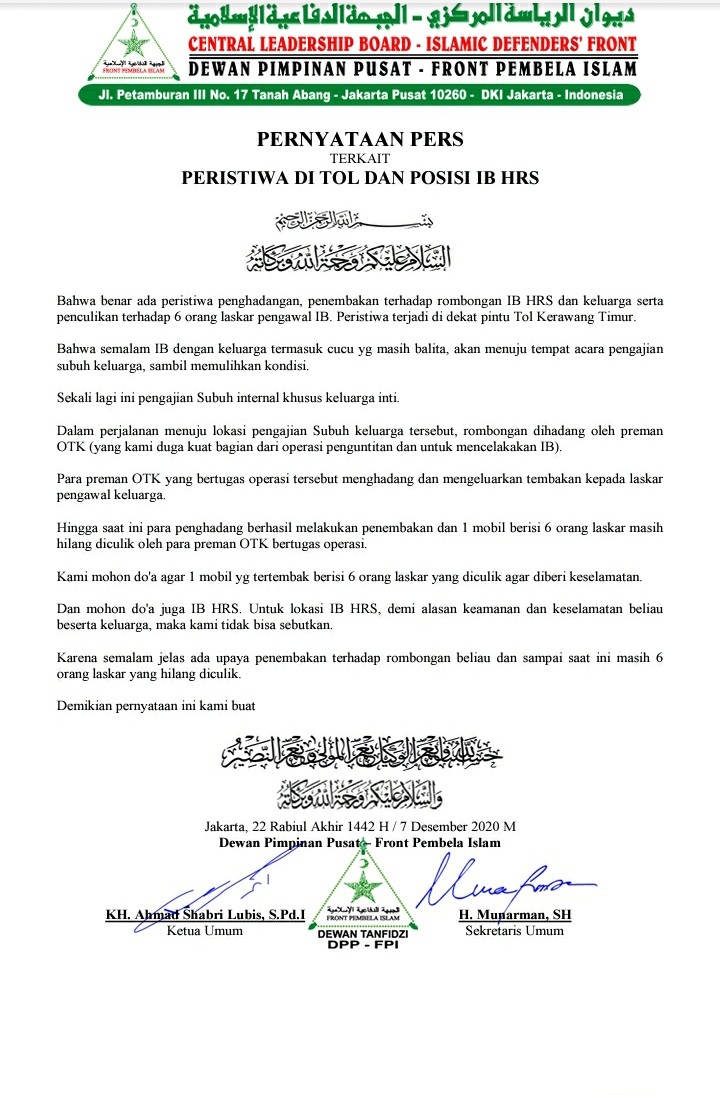 ديوان الرياسة المركزي - الجبهة الدفاعية الإسلامية
CENTRAL LEADERSHIP BOARD - ISLAMIC DEFENDERS' FRONT
DEWAN PIMPINAN PUSAT - FRONT PEMBELA ISLAM
الجبهة الدفاعية الإسلامية
FRONT PEMBELA ISLAM
Jl. Petamburan III No. 17 Tanah Abang - Jakarta Pusat 10260 - DKI Jakarta - Indonesia
PERNYATAAN PERS
TERKAIT
PERISTIWA DI TOL DAN POSISI IB HRS
بسم الله الرحمن الرحيم
السلام عليكم ورحمة الله وبركاته
Bahwa benar ada peristiwa penghadangan, penembakan terhadap rombongan IB HRS dan keluarga serta
penculikan terhadap 6 orang laskar pengawal IB. Peristiwa terjadi di dekat pintu Tol Kerawang Timur.
Bahwa semalam IB dengan keluarga termasuk cucu yg masih balita, akan menuju tempat acara pengajian
subuh keluarga, sambil memulihkan kondisi.
Sekali lagi ini pengajian Subuh internal khusus keluarga inti.
Dalam perjalanan menuju lokasi pengajian Subuh keluarga tersebut, rombongan dihadang oleh preman
OTK (yang kami duga kuat bagian dari operasi penguntitan dan untuk mencelakakan IB).
Para preman OTK yang bertugas operasi tersebut menghadang dan mengeluarkan tembakan kepada laskar
pengawal keluarga.
Hingga saat ini para penghadang berhasil melakukan penembakan dan 1 mobil berisi 6 orang laskar masih
hilang diculik oleh para preman OTK bertugas operasi.
Kami mohon do'a agar 1 mobil yg tertembak berisi 6 orang laskar yang diculik agar diberi keselamatan.
Dan mohon do'a juga IB HRS. Untuk lokasi IB HRS, demi alasan keamanan dan keselamatan beliau
beserta keluarga, maka kami tidak bisa sebutkan.
Karena semalam jelas ada upaya penembakan terhadap rombongan beliau dan sampai saat ini masih 6
orang laskar yang hilang diculik.
Demikian pernyataan ini kami buat
حسبنا الله ونعم الوكيل نعم المولى ونعم النصير
والسلام عليكم ورحمة الله وبركاته
Jakarta, 22 Rabiul Akhir 1442 H / 7 Desember 2020 M
Dewan Pimpinan Pusat - Front Pembela Islam
الجبهة الدفاعية الإسلامية
FRONT PEMBELA ISLAM
DEWAN TANFIDZI
DPP - FPI
KH. Ahmad Shabri Lubis, S.Pd.I
Ketua Umum
H. Munarman, SH
Sekretaris Umum